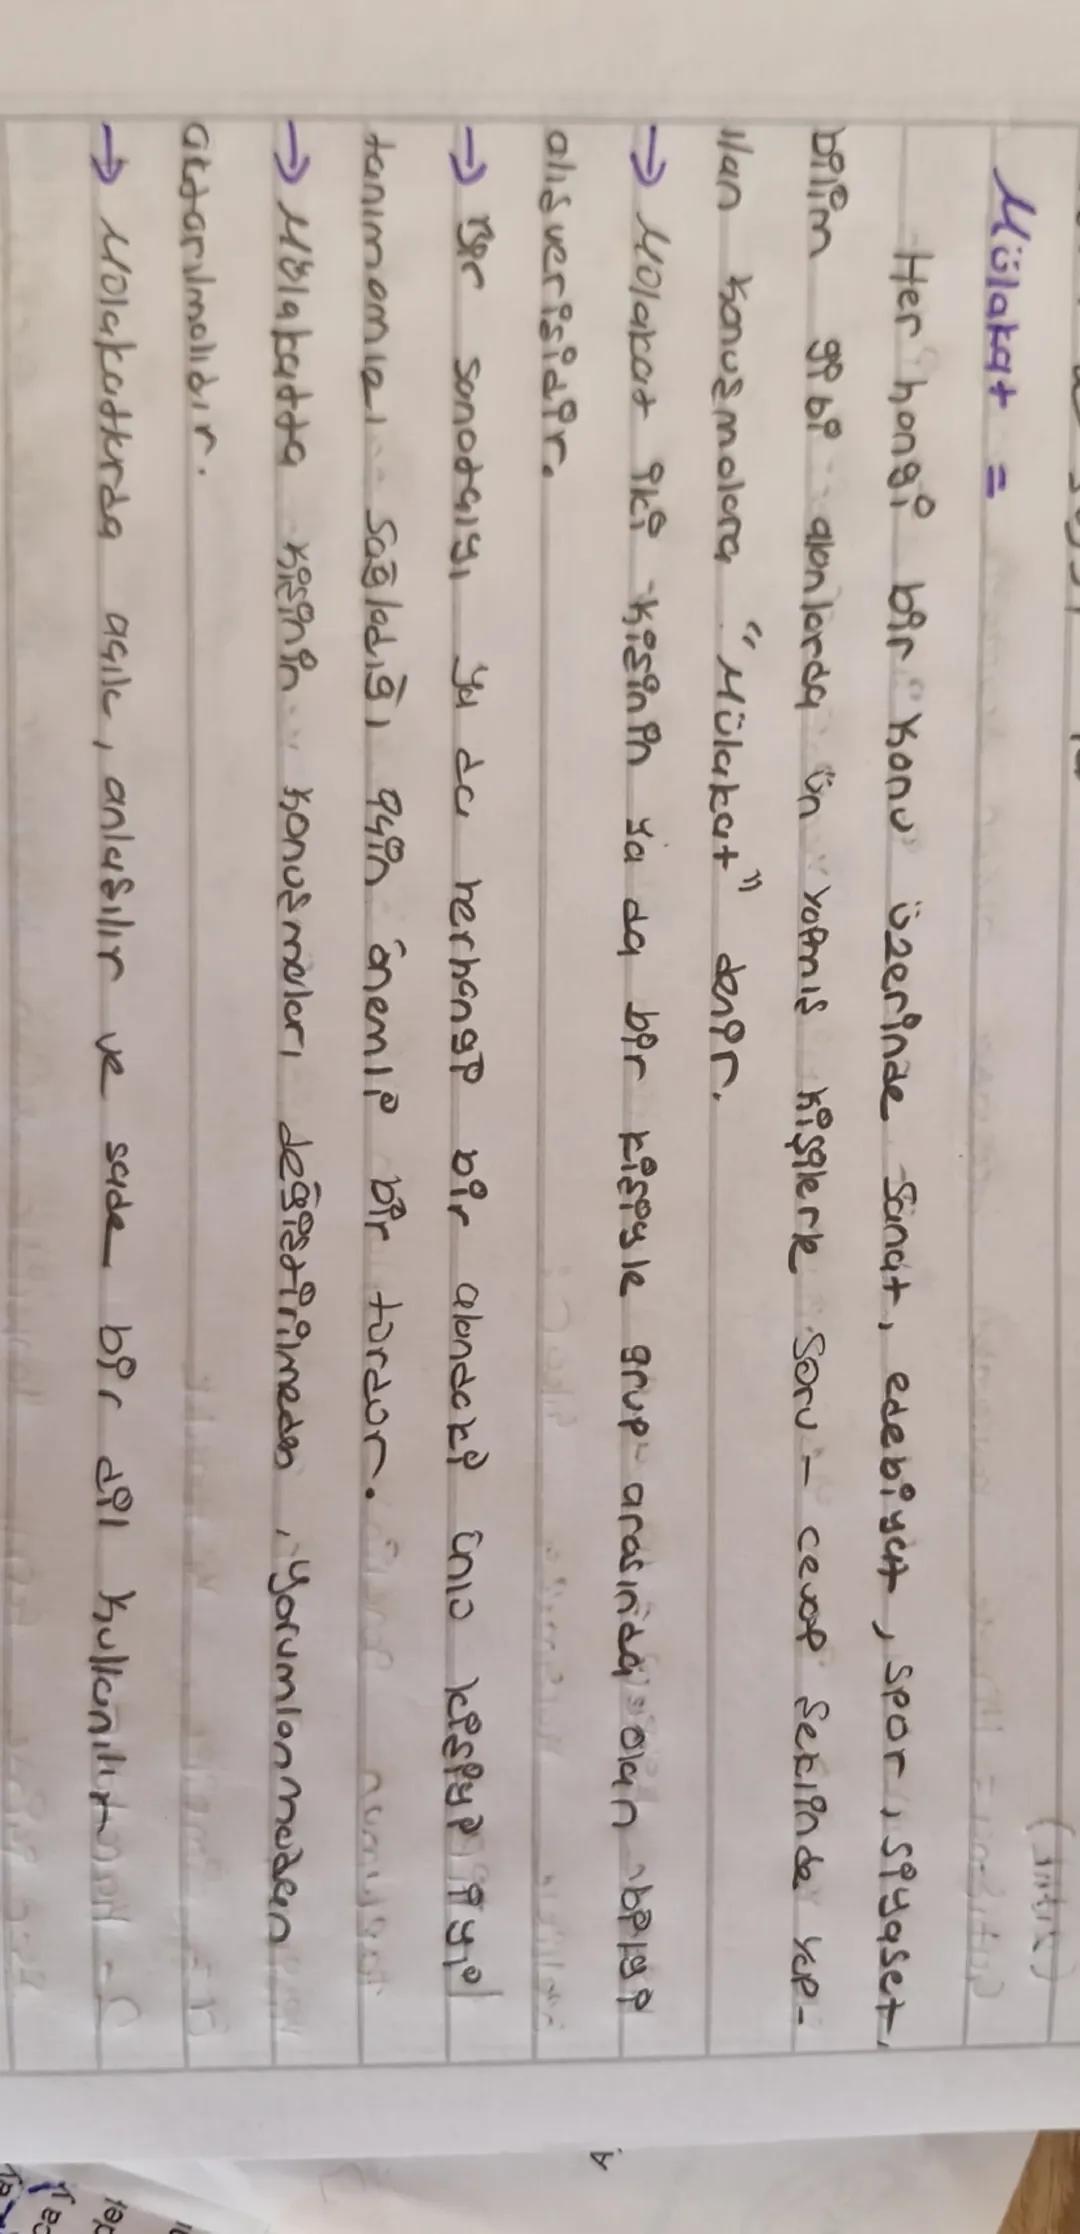 Mülakat =
Her hangi bir konu üzerinde sanat, edebiyat, spor, siyaset,
bilim gibi alanlarda ün yapmış kişilerle soru - cevap şeklinde yap-
ılan konuşmalara "Mülakat" denir.
→ Mülakat iki kişinin ya da bir kişiyle grup arasında olan bilgi
alışverişidir.
→ Bir sanatçıyı ya da herhangi bir alandaki ünlü kişiyi iyi
tanımamızı sağladığı için önemli bir türdür.
→ Mülakatta kişinin konuşmaları değiştirilmeden, yorumlanmadan
aktarılmalıdır.
→ Mülakatlarda açık, anlaşılır ve sade bir dil kullanılır